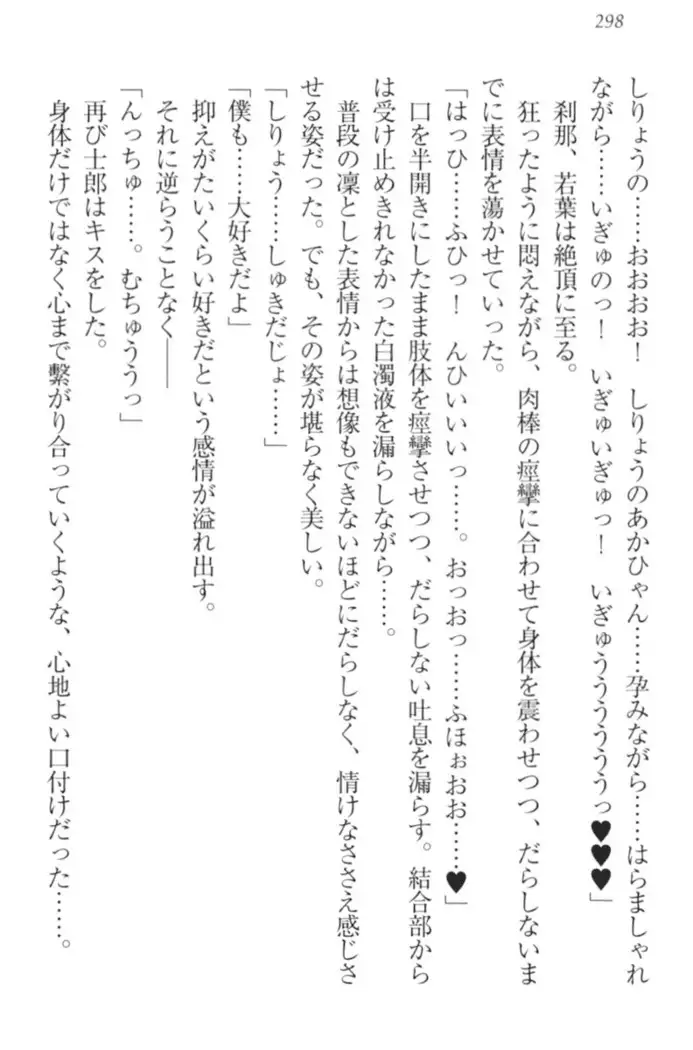 298
しりょうの……おおおお！　しりょうのあかひゃん……孕みながら……はらましゃれ
ながら……いぎゅのっ！　いぎゅいぎゅっ！　いぎゅうううううっ♥♥♥」
刹那、若葉は絶頂に至る。
狂ったように悶えながら、肉棒の痙攣に合わせて身体を震わせつつ、だらしないま
でに表情を蕩かせていった。
「はっひ……ふひっ！　んひいいいっ……。おっおっ……ふほぉおお……♥」
口を半開きにしたまま肢体を痙攣させつつ、だらしない吐息を漏らす。結合部から
は受け止めきれなかった白濁液を漏らしながら……。
普段の凜とした表情からは想像もできないほどにだらしなく、情けなささえ感じさ
せる姿だった。でも、その姿が堪らなく美しい。
「しりょう……しゅきだじょ……」
「僕も……大好きだよ」
抑えがたいくらい好きだという感情が溢れ出す。
それに逆らうことなく――
「んっちゅ……。むちゅううっ」
再び士郎はキスをした。
身体だけではなく心まで繋がり合っていくような、心地よい口付けだった……。